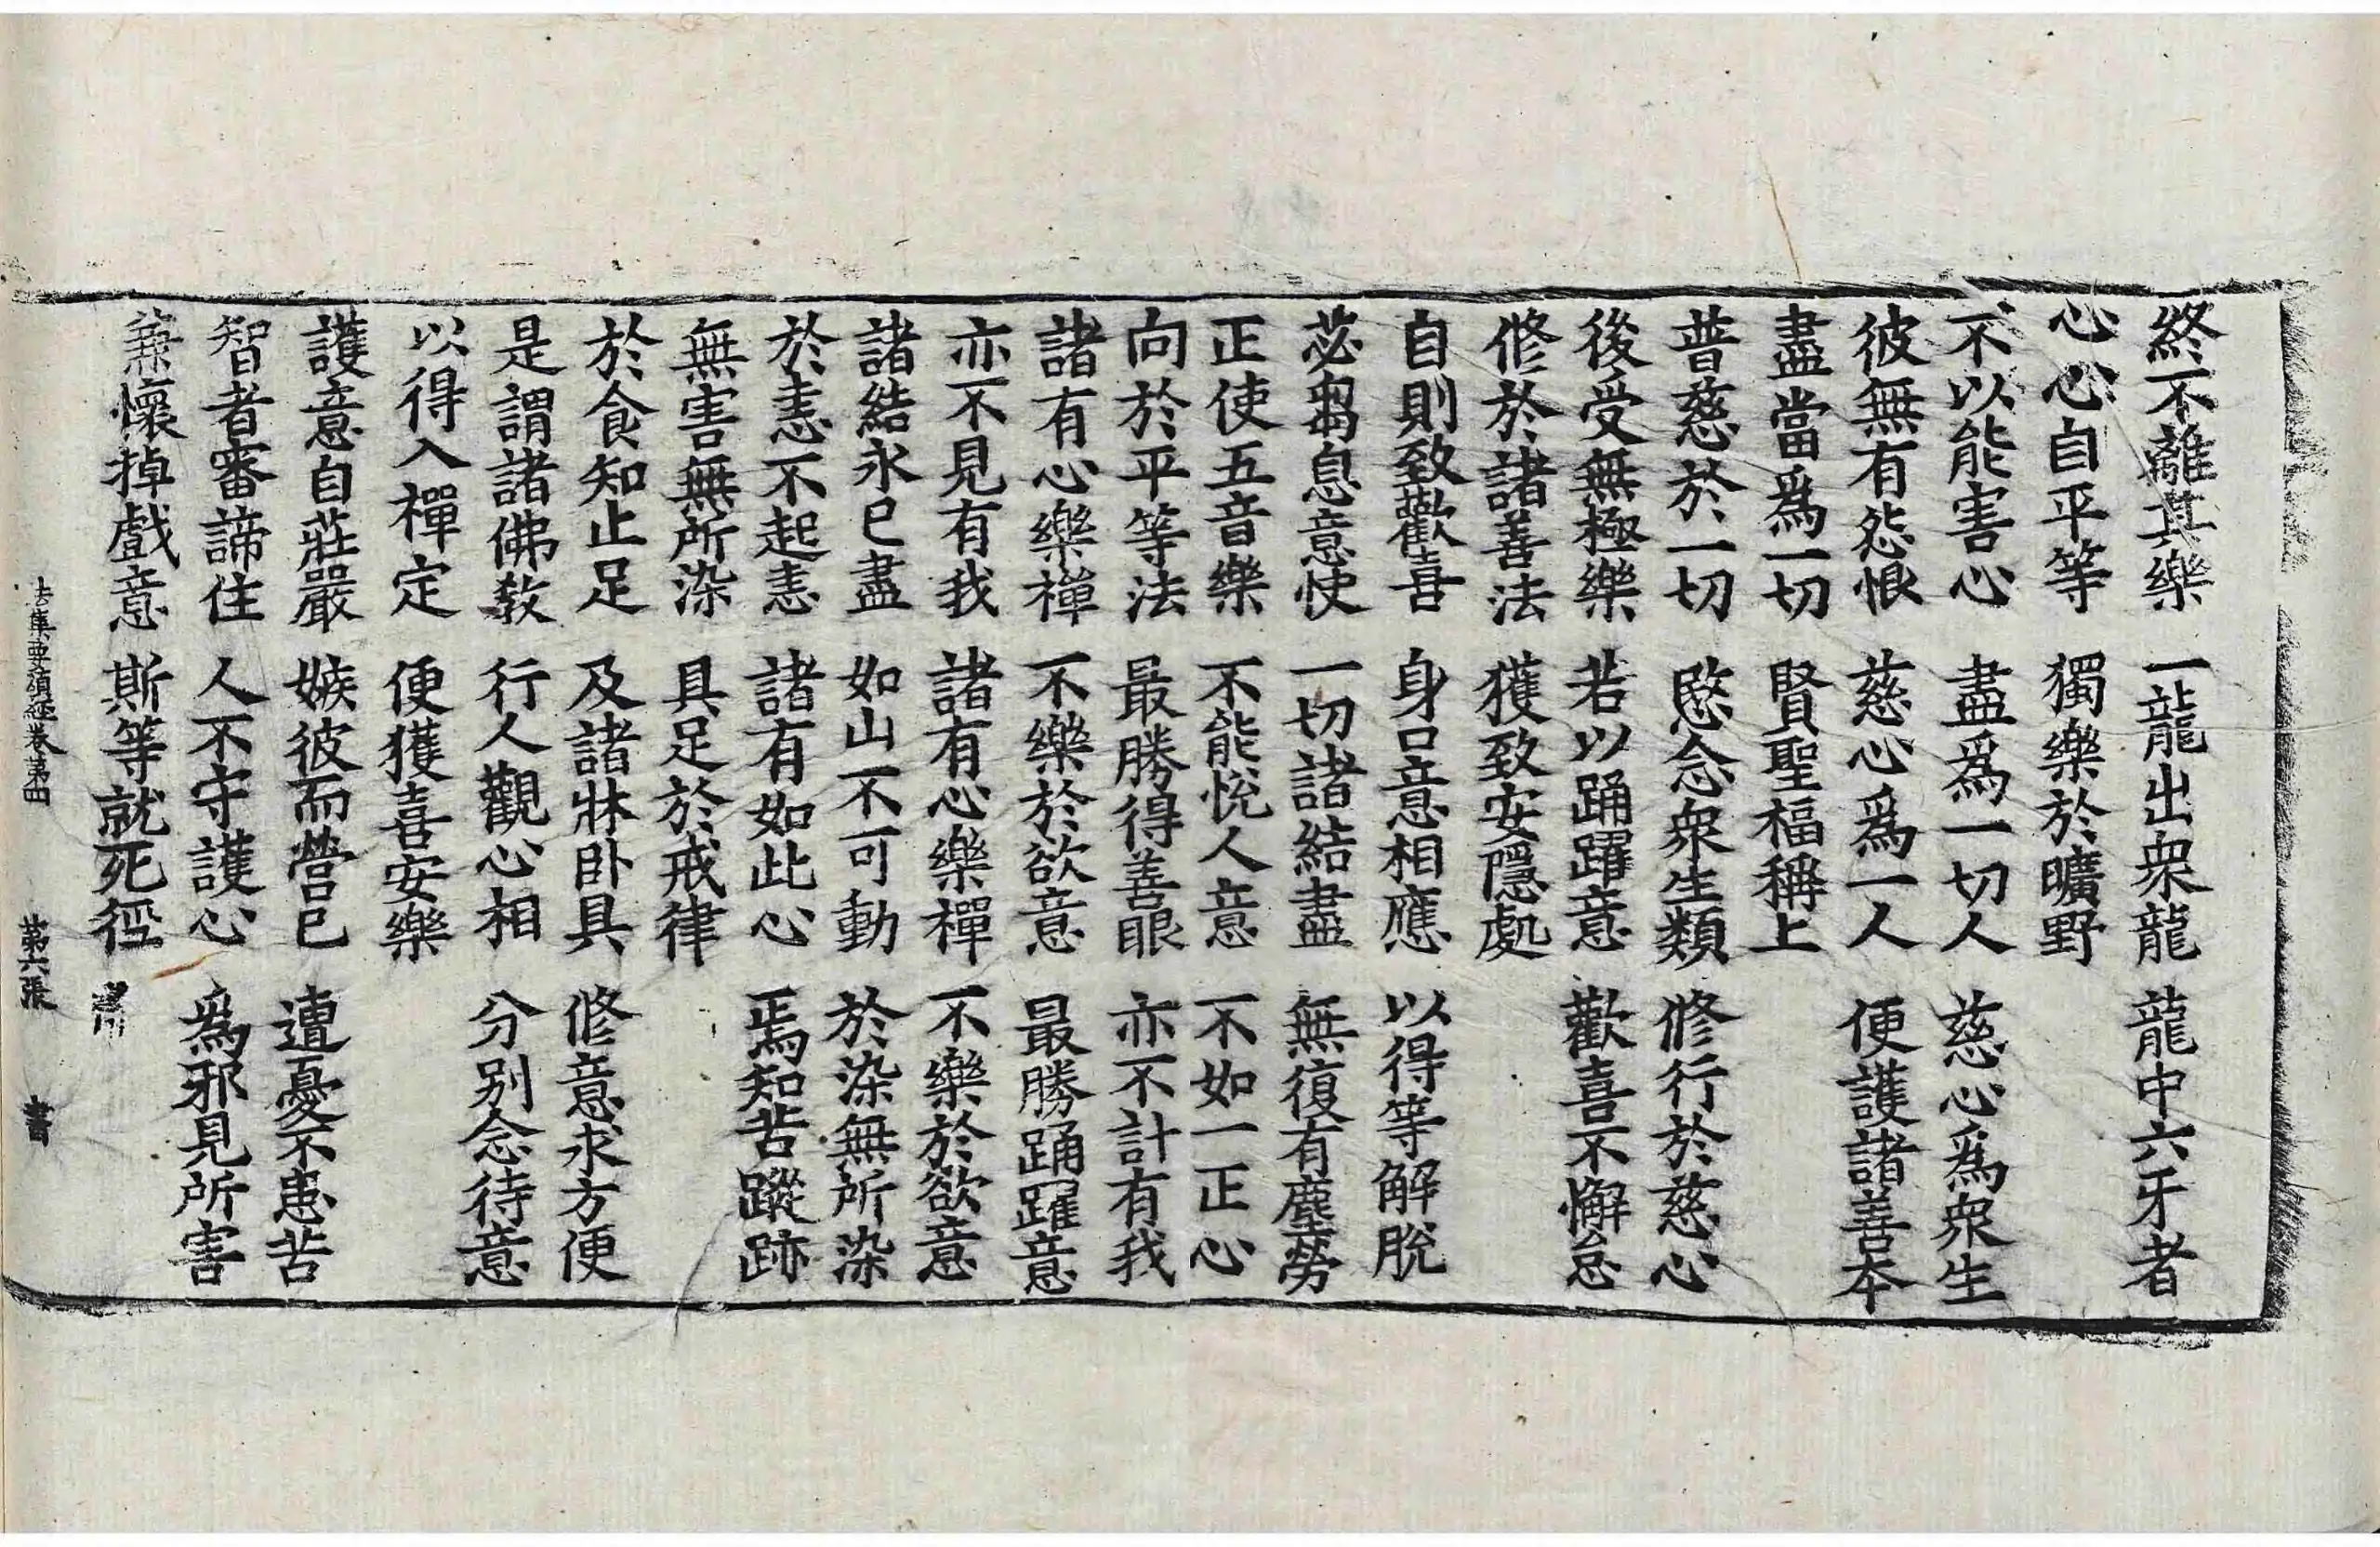 終不離其樂 一龍出衆龍 龍中六牙者
心心自平等 獨樂於曠野
不以能害心 盡爲一切人 慈心爲衆生
彼無有怨恨 慈心爲一人 便護諸善本
盡當爲一切 賢聖福稱上
普慈於一切 愍念衆生類 修行於慈心
後受無極樂 若以踊躍意 歡喜不懈怠
修於諸善法 獲致安隱處
自則致歡喜 身口意相應 以得等解脫
苾芻息意快 一切諸結盡 無復有塵勞
正使五音樂 不能悅人意 不如一正心
向於平等法 最勝得善眼 亦不計有我
諸有心樂禪 不樂於欲意 最勝踊躍意
亦不見有我 諸有心樂禪 不樂於欲意
諸結永已盡 如山不可動 於染無所染
於恚不起恚 諸有如此心 焉知苦蹤跡
無害無所染 具足於戒律
於食知止足 及諸牀卧具 修意求方便
是謂諸佛教 行人觀心相 分別念待意
以得入禪定 便獲喜安樂
護意自莊嚴 嫉彼而營已 遭憂不患苦
智者審諦住 人不守護心 爲邪見所害
兼懷掉戲意 斯等就死徑
法集要頌經卷第四 第六張 書